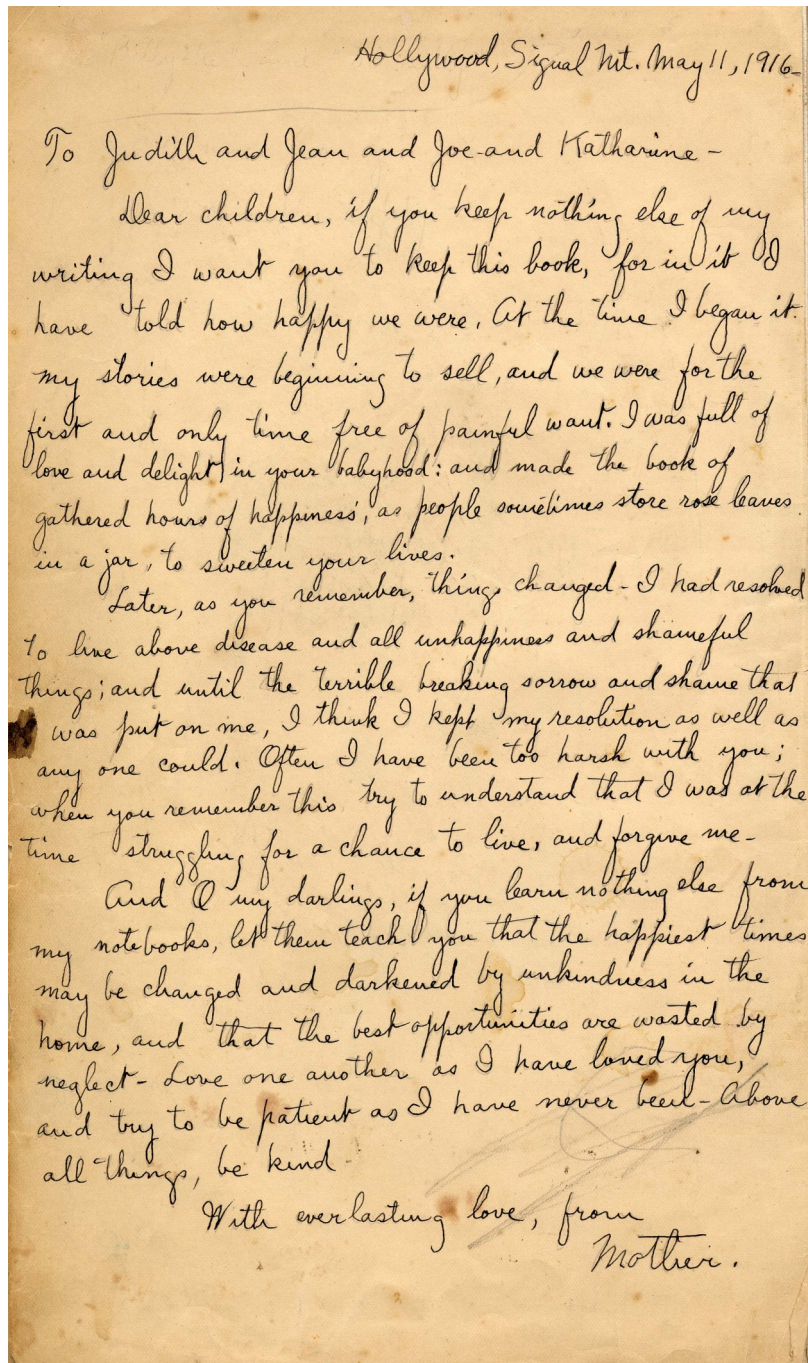 Hollywood, Signal Mt. May 11, 1916-
To Judith and Jean and Joe-and Katharine-
Dear children, if you keep nothing else of my
writing I want you to keep this book, for in it I
have told how happy we were. At the time I began it.
my stories were beginning to sell, and we were for the
first and only time free of painful want. I was full of
love and delight in your babyhood: and made the book of
gathered hours of happiness, as people sometimes store rose leaves
in a jar, to sweeten your lives.
Later, as you remember, things changed - I had resolved
to live above disease and all unhappiness and shameful
things; and until the terrible breaking sorrow and shame that
was put on me, I think I kept my resolution as well as
any one could. Often I have been too harsh with you;
when you remember this try to understand that I was at the
time struggling for a chance to live, and forgive me-
And O my darlings, if you learn nothing else from
my notebooks, let them teach you that the happiest times
may be changed and darkened by unkindness in the
home, and that the best opportunities are wasted by
neglect - Love one another as I have loved you,
and try to be patient as I have never been - Above
all things, be kind-
With everlasting love, from
Mother.